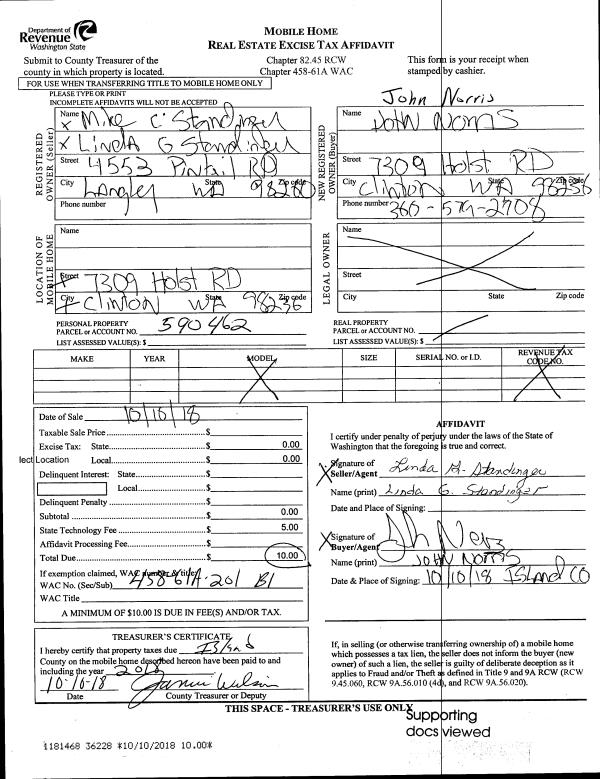 Department of
Revenue
Washington State
MOBILE HOME
REAL ESTATE EXCISE TAX AFFIDAVIT
Submit to County Treasurer of the
county in which property is located.
Chapter 82.45 RCW
Chapter 458-61A WAC
This form is your receipt when
stamped by cashier.
FOR USE WHEN TRANSFERRING TITLE TO MOBILE HOME ONLY
PLEASE TYPE OR PRINT
INCOMPLETE AFFIDAVITS WILL NOT BE ACCEPTED
REGISTERED
OWNER (Seller)
Name
x Mike C Standinger
x Linda G Standinger
Street 4553 Pintail RD
City Langley State WA Zip code 98260
Phone number
John Norris
NEW REGISTERED
OWNER (Buyer)
Name
John Norris
Street 7309 Holst RD
City Clinton State WA Zip code 98236
Phone number 360-579-2708
LOCATION OF
MOBILE HOME
Name
Street 7309 Holst RD
City Clinton State WA Zip code 98236
LEGAL OWNER
Name
Street
City State Zip code
PERSONAL PROPERTY
PARCEL or ACCOUNT NO. 590462
LIST ASSESSED VALUE(S): $
REAL PROPERTY
PARCEL or ACCOUNT NO.
LIST ASSESSED VALUE(S): $
MAKE YEAR MODEL SIZE SERIAL NO. or I.D. REVENUE TAX CODE NO.
Date of Sale 10/10/18
Taxable Sale Price $
Excise Tax: State $ 0.00
lect Location Local $ 0.00
Delinquent Interest: State $
Local $
Delinquent Penalty $
Subtotal $ 0.00
State Technology Fee $ 5.00
Affidavit Processing Fee $
Total Due $ 10.00
If exemption claimed, WAC number & title:
WAC No. (Sec/Sub) 458 61A-201 B1
WAC Title
A MINIMUM OF $10.00 IS DUE IN FEE(S) AND/OR TAX.
AFFIDAVIT
I certify under penalty of perjury under the laws of the State of
Washington that the foregoing is true and correct.
Signature of
Seller/Agent Linda G. Standinger
Name (print) Linda G. Standinger
Date and Place of Signing:
Signature of
Buyer/Agent
Name (print) JOHN NORRIS
Date & Place of Signing: 10/10/18 ISland CO
TREASURER'S CERTIFICATE
I hereby certify that property taxes due Island
County on the mobile home described hereon have been paid to and
including the year 2018
10-10-18
Date County Treasurer or Deputy
If, in selling (or otherwise transferring ownership of) a mobile home
which possesses a tax lien, the seller does not inform the buyer (new
owner) of such a lien, the seller is guilty of deliberate deception as it
applies to Fraud and/or Theft as defined in Title 9 and 9A RCW (RCW
9.45.060, RCW 9A.56.010 (4d), and RCW 9A.56.020).
THIS SPACE - TREASURER'S USE ONLY
Supporting
docs viewed
1181468 36228 *10/10/2018 10.00*